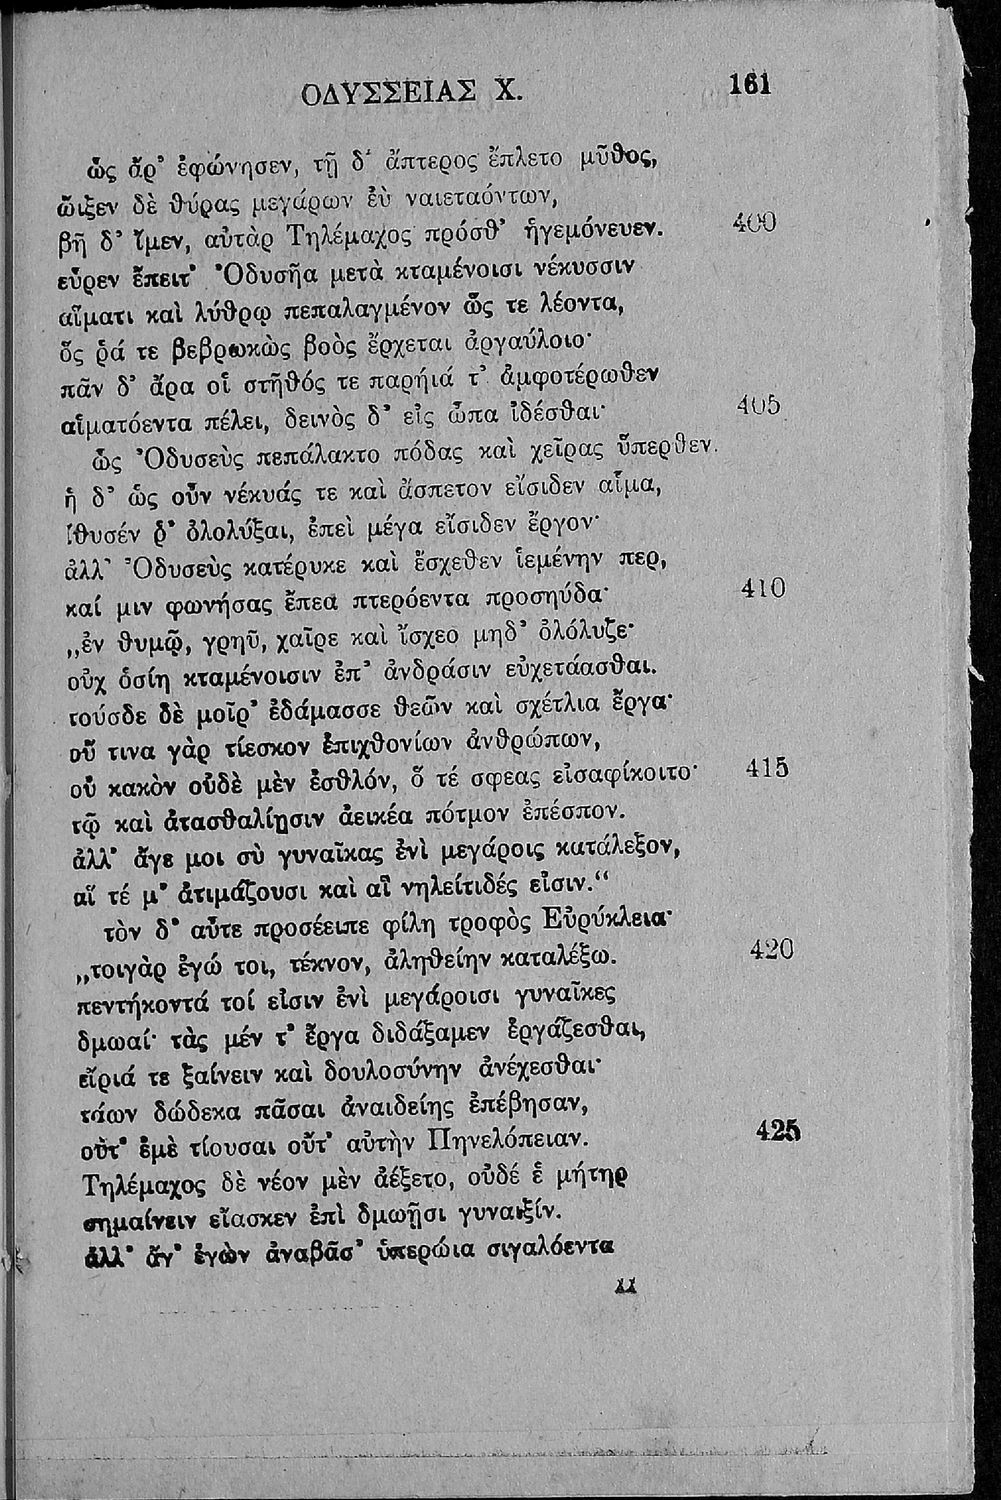 ΟΔΥΣΣΕΙΑΣ Χ. 161
ὣς ἄρ’ ἐφώνησεν, τῇ δ’ ἄπτερος ἔπλετο μῦθος,
ὤιξεν δὲ θύρας μεγάρων ἐὺ ναιεταόντων,
βῆ δ’ ἴμεν, αὐτὰρ Τηλέμαχος πρόσθ’ ἡγεμόνευεν. 400
εὗρεν ἔπειτ’ Ὀδυσῆα μετὰ κταμένοισι νέκυσσιν
αἵματι καὶ λύθρῳ πεπαλαγμένον ὥς τε λέοντα,
ὅς ῥά τε βεβρωκὼς βοὸς ἔρχεται ἀγραύλοιο·
πᾶν δ’ ἄρα οἱ στῆθός τε παρήιά τ’ ἀμφοτέρωθεν
αἱματόεντα πέλει, δεινὸς δ’ εἰς ὦπα ἰδέσθαι· 405
ὣς Ὀδυσεὺς πεπάλακτο πόδας καὶ χεῖρας ὕπερθεν.
ἡ δ’ ὡς οὖν νέκυάς τε καὶ ἄσπετον εἴσιδεν αἷμα,
ἴθυσέν ῥ’ ὀλολύξαι, ἐπεὶ μέγα εἴσιδεν ἔργον·
ἀλλ’ Ὀδυσεὺς κατέρυκε καὶ ἔσχεθεν ἱεμένην περ,
καί μιν φωνήσας ἔπεα πτερόεντα προσηύδα· 410
„ἐν θυμῷ, γρηῦ, χαῖρε καὶ ἴσχεο μηδ’ ὀλόλυζε·
οὐχ ὁσίη κταμένοισιν ἐπ’ ἀνδράσιν εὐχετάασθαι.
τούσδε δὲ μοῖρ’ ἐδάμασσε θεῶν καὶ σχέτλια ἔργα·
οὔ τινα γὰρ τίεσκον ἐπιχθονίων ἀνθρώπων,
οὐ κακὸν οὐδὲ μὲν ἐσθλόν, ὅ τέ σφεας εἰσαφίκοιτο· 415
τῷ καὶ ἀτασθαλίῃσιν ἀεικέα πότμον ἐπέσπον.
ἀλλ’ ἄγε μοι σὺ γυναῖκας ἐνὶ μεγάροις κατάλεξον,
αἵ τέ μ’ ἀτιμάζουσι καὶ αἳ νηλείτιδές εἰσιν.“
τὸν δ’ αὖτε προσέειπε φίλη τροφὸς Εὐρύκλεια·
„τοιγὰρ ἐγώ τοι, τέκνον, ἀληθείην καταλέξω. 420
πεντήκοντά τοί εἰσιν ἐνὶ μεγάροισι γυναῖκες
δμωαί· τὰς μέν τ’ ἔργα διδάξαμεν ἐργάζεσθαι,
εἴριά τε ξαίνειν καὶ δουλοσύνην ἀνέχεσθαι·
τάων δώδεκα πᾶσαι ἀναιδείης ἐπέβησαν,
οὔτ’ ἐμὲ τίουσαι οὔτ’ αὐτὴν Πηνελόπειαν. 425
Τηλέμαχος δὲ νέον μὲν ἀέξετο, οὐδέ ἑ μήτηρ
σημαίνειν εἴασκεν ἐπὶ δμωῇσι γυναιξίν.
ἀλλ’ ἄγ’ ἐγὼν ἀναβᾶσ’ ὑπερώια σιγαλόεντα